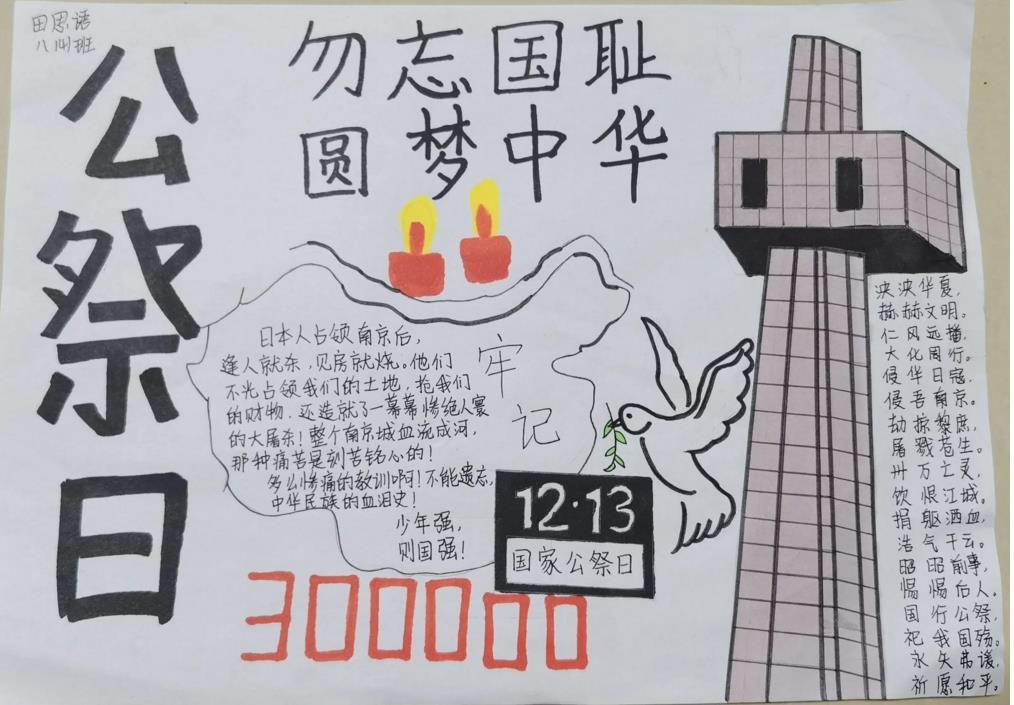 田思语
八(4)班
公祭日
勿忘国耻
圆梦中华
日本人占领南京后,
逢人就杀,见房就烧。他们
不光占领我们的土地,抢我们
的财物,还造就了一幕幕惨绝人寰
的大屠杀!整个南京城血流成河,
那种痛苦是刻苦铭心的!
多么惨痛的教训啊!不能遗忘,
中华民族的血泪史!
少年强,
则国强!
牢
记
12·13
国家公祭日
300000
泱泱华夏,
赫赫文明。
仁风远播,
大化周行。
侵华日寇,
侵吾南京。
劫掠黎庶,
屠戮苍生。
卅万亡灵,
饮恨江城。
捐躯洒血,
浩气干云。
昭昭前事,
惕惕后人。
国行公祭,
祀我国殇。
永矢弗谖,
祈愿和平。